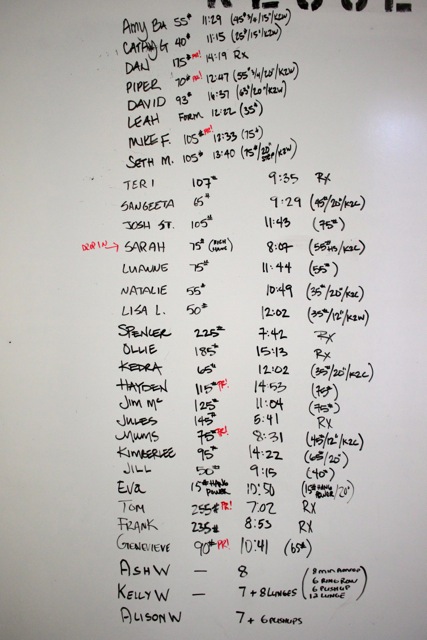 Amy Ba 55# 11:29 (45# 3/4/15"/K2W)
Cathy G 40# 11:15 (25#/15"/K2W)
Dan 175# PR! 14:19 Rx
Piper 70# PR! 12:47 (55# 3/4/20"/K2W)
David 93# 16:37 (63#/20"/K2W)
Leah Form 12:22 (35#)
Mike F. 105# PR! 12:33 (75#)
Seth M. 105# 13:40 (75#/20"/K2W)
Teri 107# 9:35 Rx
Sangeeta 65# 9:29 (45#/20"/K2C)
Josh St. 105# 11:43 (75#)
Drop in → Sarah 75# (High Hang) 8:07 (55#/K2C)
Luanne 75# 11:44 (55#)
Natalie 55# 10:49 (35#/20"/K2C)
Lisa L. 50# 12:02 (35#/12"/K2W)
Spencer 225# 7:42 Rx
Ollie 185# 15:13 Rx
Kedra 65# 12:02 (35#/20"/K2C)
Hayden 115# PR! 14:53 (75#)
Jim Mc 125# 11:04 (75#)
Jules 145# 5:41 Rx
Mums 75# PR! 8:31 (45#/12"/K2C)
Kimberlee 95# 14:22 (65#/20")
Jill 50# 9:15 (40#)
Eva 15# Hang Power 10:50 (15# Hang Power/20")
Tom 255# PR! 7:02 Rx
Frank 235# 8:53 Rx
Genevieve 90# PR! 10:41 (65#)
Ash W — 8 (8 min
Kelly W — 7 + 8 Lunges 6 Ring Row
6 Pushup
12 Lunge)
Alison W 7 + 6 Pushups